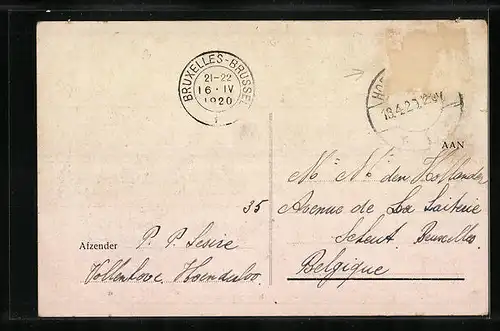 BRUXELLES-BRUSSEL
21-22
16·IV
1920
HO
AAN
Mr Mr den Hollander
35 Avenue de La Laiterie
Scheut. Bruxelles
Belgique
Afzender P. P. Lesire
Vollenhove Hoenderloo